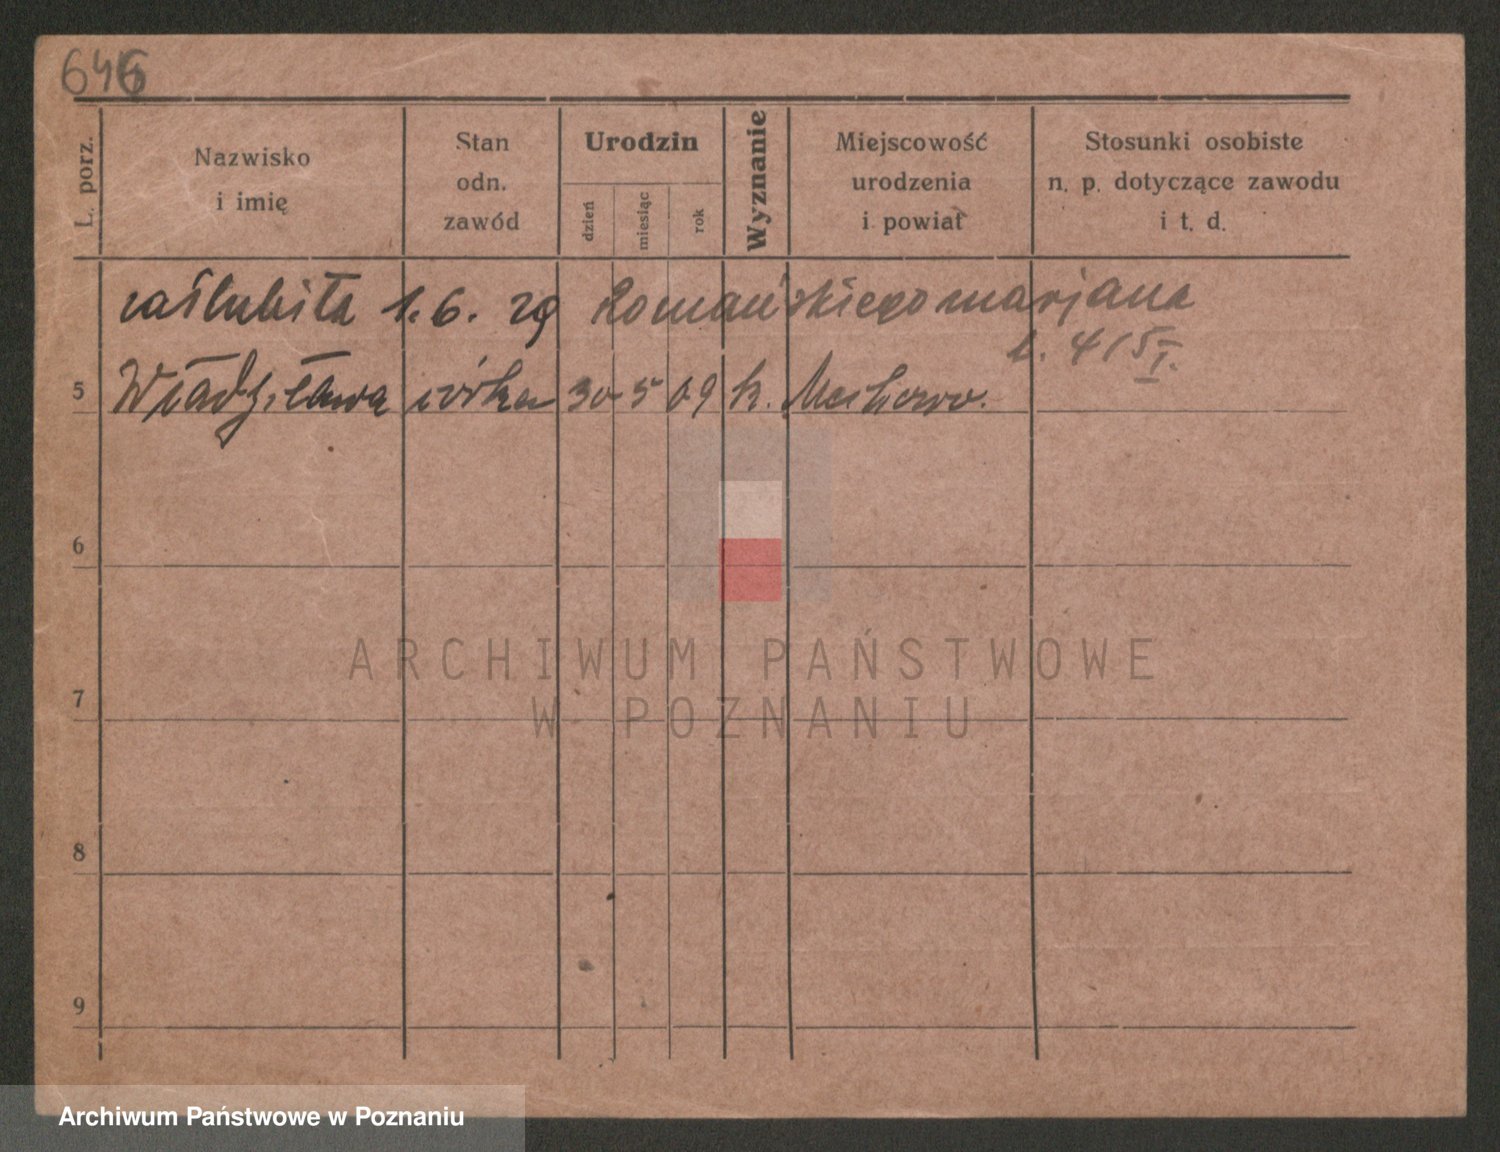 646
L. porz.
Nazwisko
i imię
Stan
odn.
zawód
Urodzin
dzień
miesiąc
rok
Wyznanie
Miejscowość
urodzenia
i powiat
Stosunki osobiste
n. p. dotyczące zawodu
i t. d.
zaślubiła 1.6. 29 Romańskiego marjana
l. 415 I.
5 Władysława córka 30 5 09 k.
6
7
8
9
ARCHIWUM PAŃSTWOWE
W POZNANIU
Archiwum Państwowe w Poznaniu